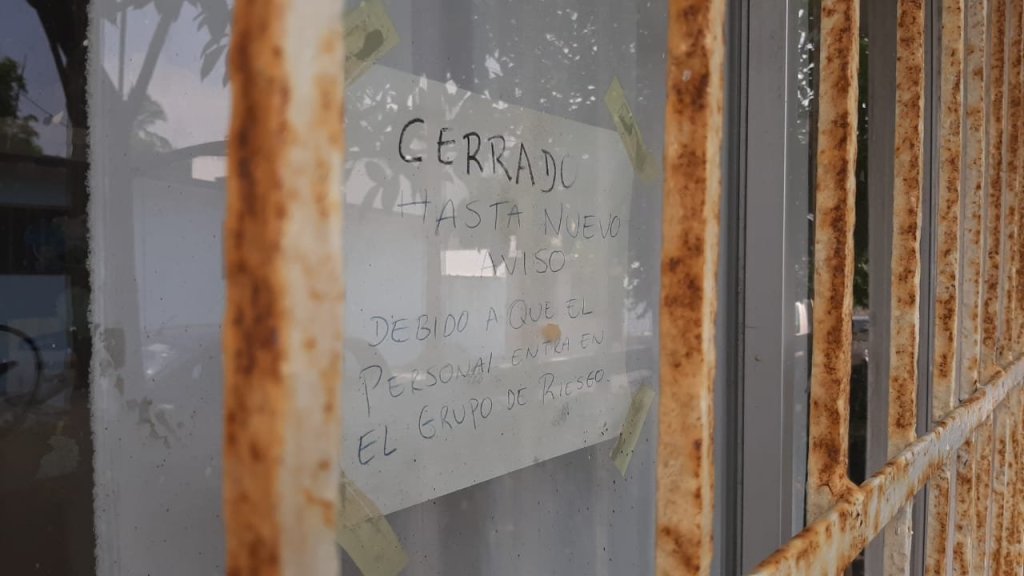 CERRADO
HASTA NUEVO
AVISO
DEBIDO A QUE EL
PERSONAL ENTRA EN
EL GRUPO DE RIESGO.